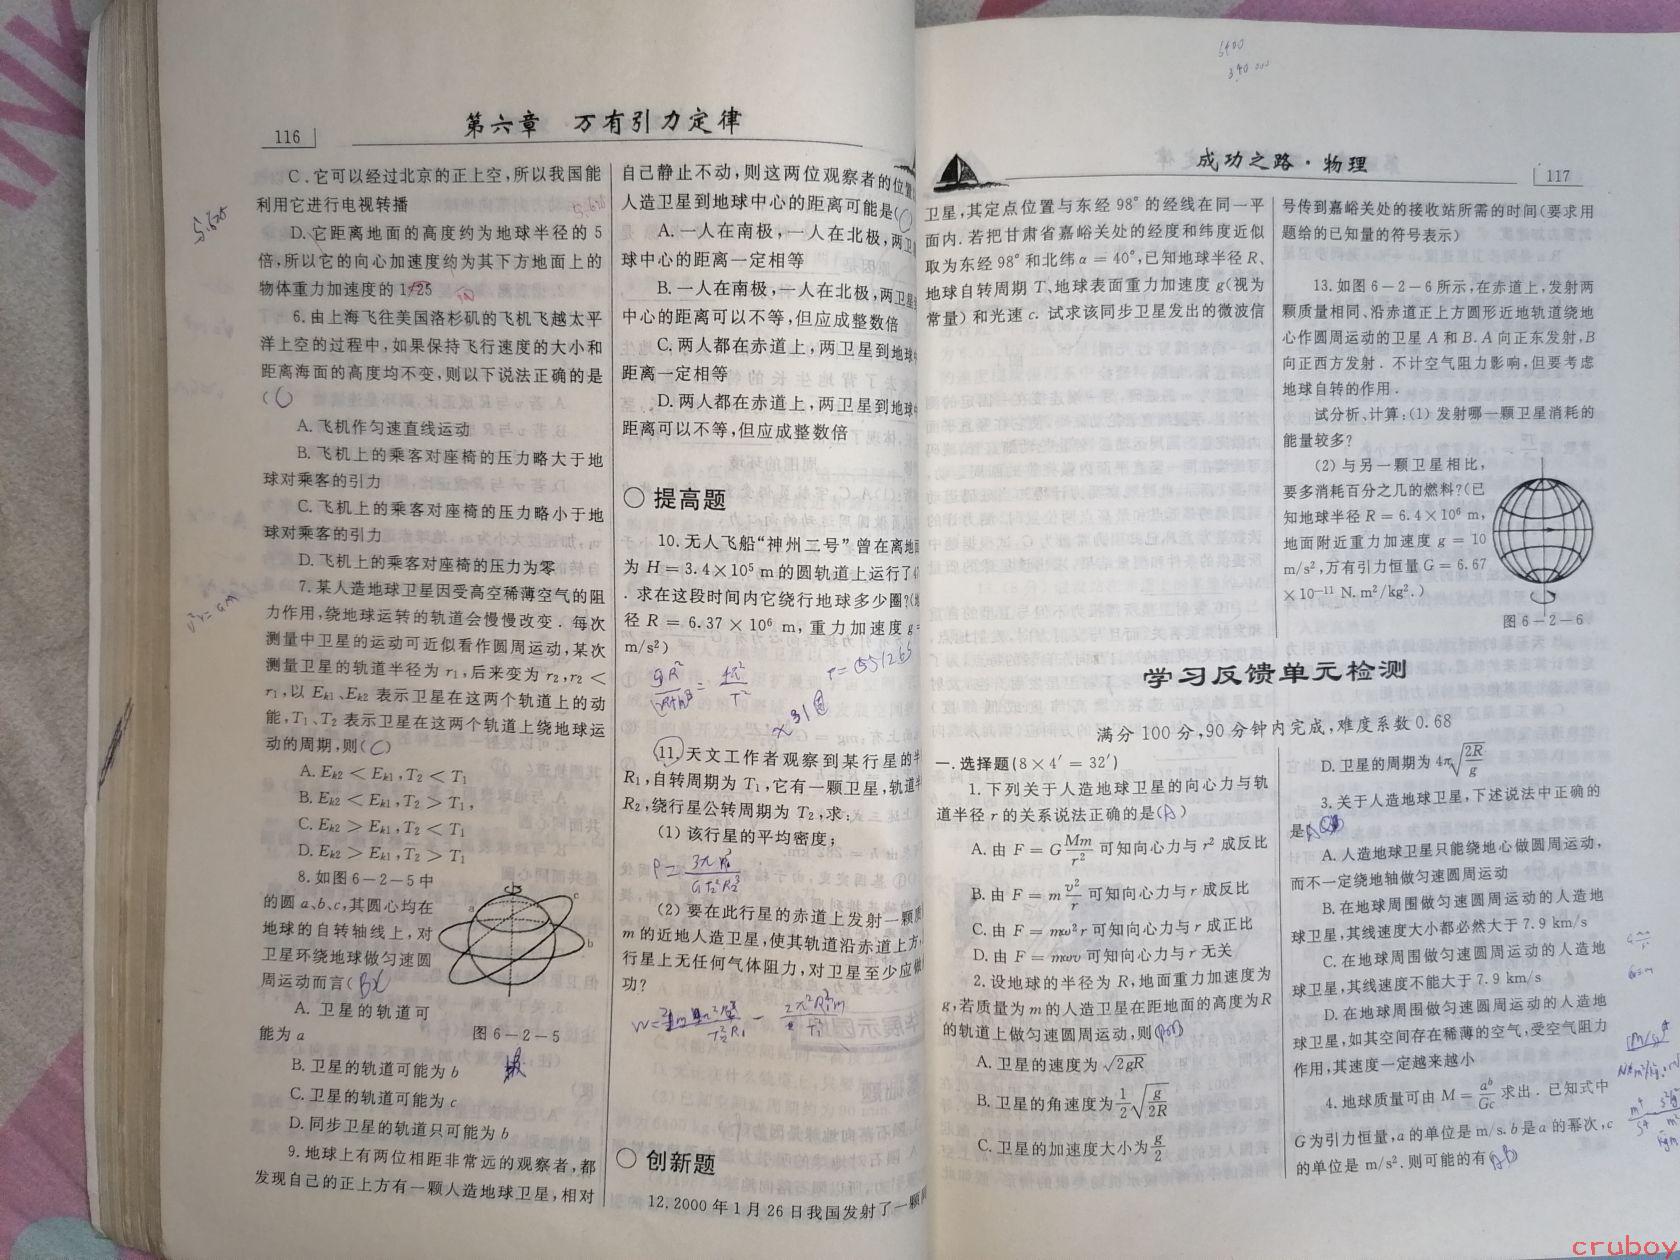 116
第六章 万有引力定律
C.它可以经过北京的正上空,所以我国能
利用它进行电视转播
D.它距离地面的高度约为地球半径的5
倍,所以它的向心加速度约为其下方地面上的
物体重力加速度的1/25
6.由上海飞往美国洛杉矶的飞机飞越太平
洋上空的过程中,如果保持飞行速度的大小和
距离海面的高度均不变,则以下说法正确的是
(C)
A.飞机作匀速直线运动
B.飞机上的乘客对座椅的压力略大于地
球对乘客的引力
C.飞机上的乘客对座椅的压力略小于地
球对乘客的引力
D.飞机上的乘客对座椅的压力为零
7.某人造地球卫星因受高空稀薄空气的阻
力作用,绕地球运转的轨道会慢慢改变.每次
测量中卫星的运动可近似看作圆周运动,某次
测量卫星的轨道半径为r₁,后来变为r₂,r₂<
r₁,以Eₖ₁、Eₖ₂表示卫星在这两个轨道上的动
能,T₁、T₂表示卫星在这两个轨道上绕地球运
动的周期,则(C)
A.Eₖ₂<Eₖ₁,T₂<T₁
B.Eₖ₂<Eₖ₁,T₂>T₁,
C.Eₖ₂>Eₖ₁,T₂<T₁
D.Eₖ₂>Eₖ₁,T₂>T₁
8.如图6-2-5中
的圆a、b、c,其圆心均在
地球的自转轴线上,对
卫星环绕地球做匀速圆
周运动而言(
A.卫星的轨道可
能为a
a
c
b
图6-2-5
B.卫星的轨道可能为b
C.卫星的轨道可能为c
D.同步卫星的轨道只可能为b
9.地球上有两位相距非常远的观察者,都
发现自己的正上方有一颗人造地球卫星,相对
自己静止不动,则这两位观察者的位置
人造卫星到地球中心的距离可能是(C)
A.一人在南极,一人在北极,两卫
球中心的距离一定相等
B.一人在南极,一人在北极,两卫星
中心的距离可以不等,但应成整数倍
C.两人都在赤道上,两卫星到地球
距离一定相等
D.两人都在赤道上,两卫星到地球
距离可以不等,但应成整数倍
○ 提高题
10.无人飞船“神州二号”曾在离地面
为H=3.4×10⁵ m的圆轨道上运行了4
.求在这段时间内它绕行地球多少圈?(地
径R=6.37×10⁶ m,重力加速度g=
m/s²)
31圈
11.天文工作者观察到某行星的半
R₁,自转周期为T₁,它有一颗卫星,轨道半
R₂,绕行星公转周期为T₂,求:
(1)该行星的平均密度;
(2)要在此行星的赤道上发射一颗质
m的近地人造卫星,使其轨道沿赤道上方,
行星上无任何气体阻力,对卫星至少应做
功?
○ 创新题
12.2000年1月26日我国发射了一颗
5400
340000
成功之路·物理
117
卫星,其定点位置与东经98°的经线在同一平
面内.若把甘肃省嘉峪关处的经度和纬度近似
取为东经98°和北纬α=40°,已知地球半径R、
地球自转周期T、地球表面重力加速度g(视为
常量)和光速c.试求该同步卫星发出的微波信
号传到嘉峪关处的接收站所需的时间(要求用
题给的已知量的符号表示)
13.如图6-2-6所示,在赤道上,发射两
颗质量相同、沿赤道正上方圆形近地轨道绕地
心作圆周运动的卫星A和B.A向正东发射,B
向正西方发射.不计空气阻力影响,但要考虑
地球自转的作用.
试分析、计算:(1)发射哪一颗卫星消耗的
能量较多?
(2)与另一颗卫星相比,
要多消耗百分之几的燃料?(已
知地球半径R=6.4×10⁶ m,
地面附近重力加速度g=10
m/s²,万有引力恒量G=6.67
×10⁻¹¹ N.m²/kg².)
图6-2-6
学习反馈单元检测
满分100分,90分钟内完成,难度系数0.68
一.选择题(8×4′=32′)
1.下列关于人造地球卫星的向心力与轨
道半径r的关系说法正确的是(A)
A.由F=G Mm/r² 可知向心力与r²成反比
B.由F=m v²/r 可知向心力与r成反比
C.由F=mω²r可知向心力与r成正比
D.由F=mωv可知向心力与r无关
2.设地球的半径为R,地面重力加速度为
g,若质量为m的人造卫星在距地面的高度为R
的轨道上做匀速圆周运动,则(
A.卫星的速度为√2gR
B.卫星的角速度为1/2√(g/2R)
C.卫星的加速度大小为g/2
D.卫星的周期为4π√(2R/g)
3.关于人造地球卫星,下述说法中正确的
是
A.人造地球卫星只能绕地心做圆周运动,
而不一定绕地轴做匀速圆周运动
B.在地球周围做匀速圆周运动的人造地
球卫星,其线速度大小都必然大于7.9 km/s
C.在地球周围做匀速圆周运动的人造地
球卫星,其线速度不能大于7.9 km/s
D.在地球周围做匀速圆周运动的人造地
球卫星,如其空间存在稀薄的空气,受空气阻力
作用,其速度一定越来越小
4.地球质量可由M=aᵇ/Gc求出.已知式中
G为引力恒量,a的单位是m/s.b是a的幂次,c
的单位是m/s².则可能的有(
cruboy